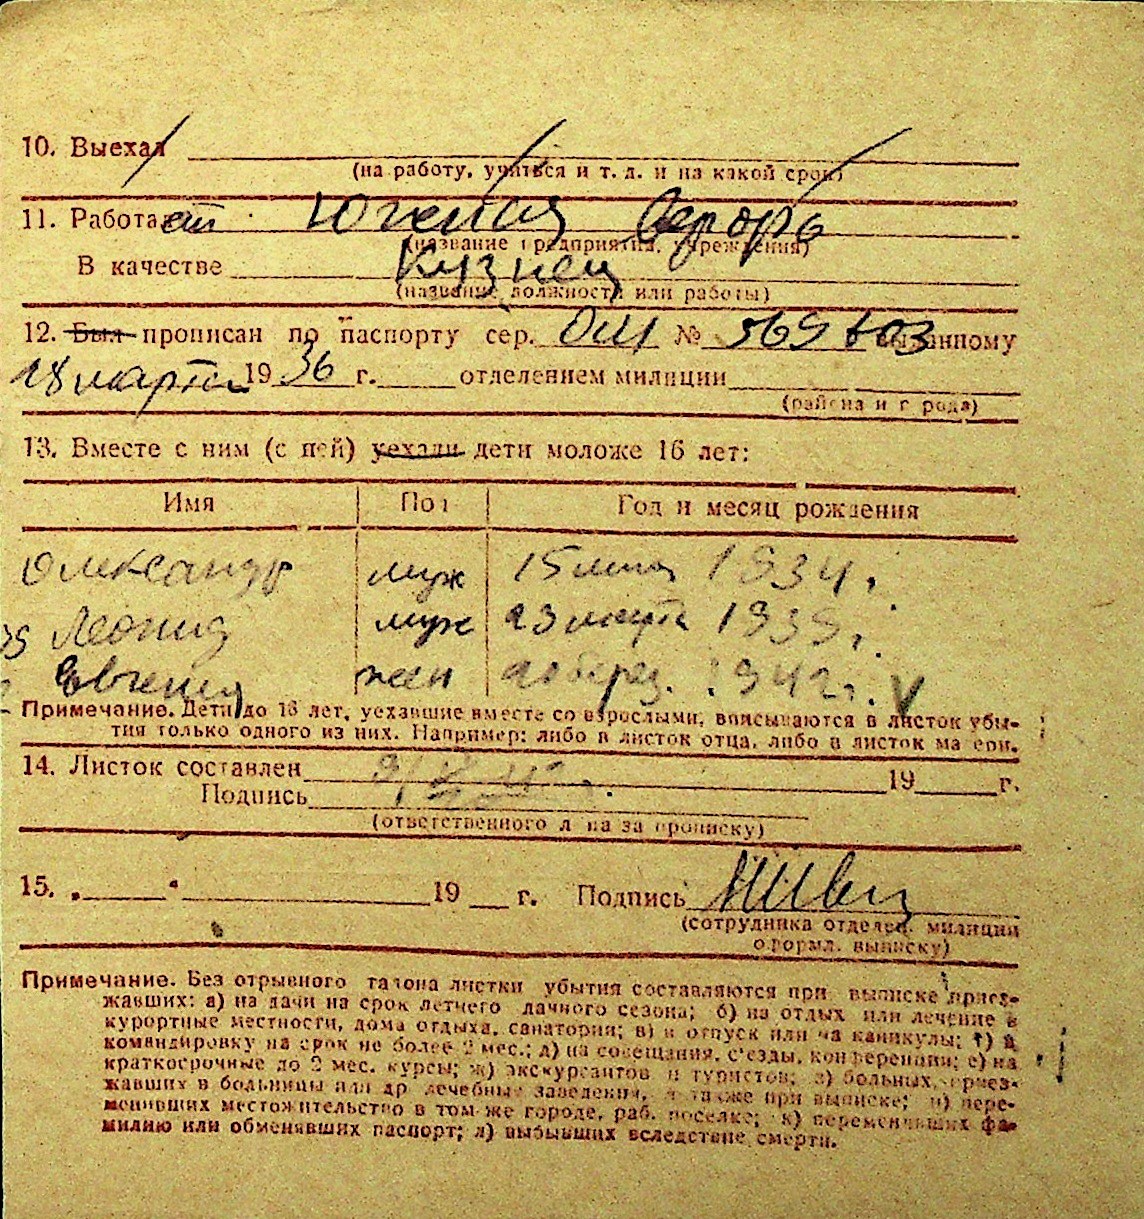 10. Выехал
(на работу, учиться и т. д. и на какой срок)
11. Работает
(название предприятия, учреждения)
В качестве Кузнец
(название должности или работы)
12. Был прописан по паспорту сер. № выданному
18 марта 1936 г. отделением милиции
(района и города)
13. Вместе с ним (с ней) уехали дети моложе 16 лет:
Имя Пол Год и месяц рождения
Олександр муж 15 1934.
Леонид муж 23 марта 1939.
Евгения жен берез. 1942 г. V
Примечание. Дети до 16 лет, уехавшие вместе со взрослыми, вписываются в листок убы-
тия только одного из них. Например: либо в листок отца, либо в листок матери.
14. Листок составлен 19 г.
Подпись
(ответственного лица за прописку)
15. „ “ 19 г. Подпись
(сотрудника отделен. милиции
оформл. выписку)
Примечание. Без отрывного талона листки убытия составляются при выписке приез-
жавших: а) на дачи на срок летнего дачного сезона; б) на отдых или лечение в
курортные местности, дома отдыха, санатории; в) в отпуск или на каникулы; г) в
командировку на срок не более 2 мес.; д) на совещания, с'езды, конференции; е) на
краткосрочные до 2 мес. курсы; ж) экскурсантов и туристов; з) больных, приез-
жавших в больницы или др лечебные заведения, а также при выписке; и) пере-
менивших местожительство в том же городе, раб. поселке; к) переменивших фа-
милию или обменявших паспорт; л) выбывших вследствие смерти.